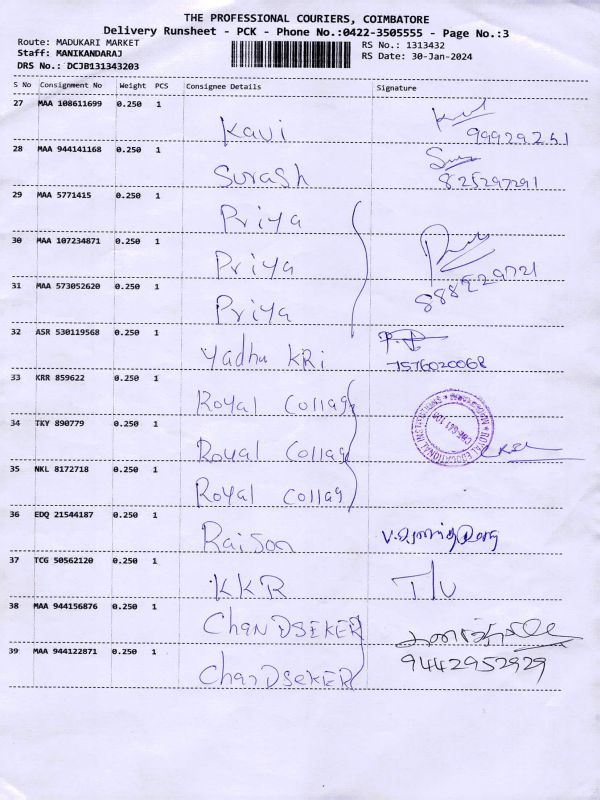 THE PROFESSIONAL COURIERS, COIMBATORE
Delivery Runsheet - PCK - Phone No.:0422-3505555 - Page No.:3
Route: MADUKARI MARKET
Staff: MANIKANDARAJ
DRS No.: DCJB131343203
RS No.: 1313432
RS Date: 30-Jan-2024
S No Consignment No Weight PCS Consignee Details Signature
27 MAA 108611699 0.250 1
Kavi 99929251
28 MAA 944141168 0.250 1
Surash 825297291
29 MAA 5771415 0.250 1
Priya
30 MAA 107234871 0.250 1
Priya
31 MAA 573052620 0.250 1
Priya
32 ASR 530119568 0.250 1
Yadhu KRi 7576020068
33 KRR 859622 0.250 1
Royal Collag
34 TKY 890779 0.250 1
Royal Collag
35 NKL 8172718 0.250 1
Royal Collag
36 EDQ 21544187 0.250 1
Raison
37 TCG 50562120 0.250 1
KKR
38 MAA 944156876 0.250 1
ChanDSEKER
39 MAA 944122871 0.250 1
ChanDSEKER 9442952929